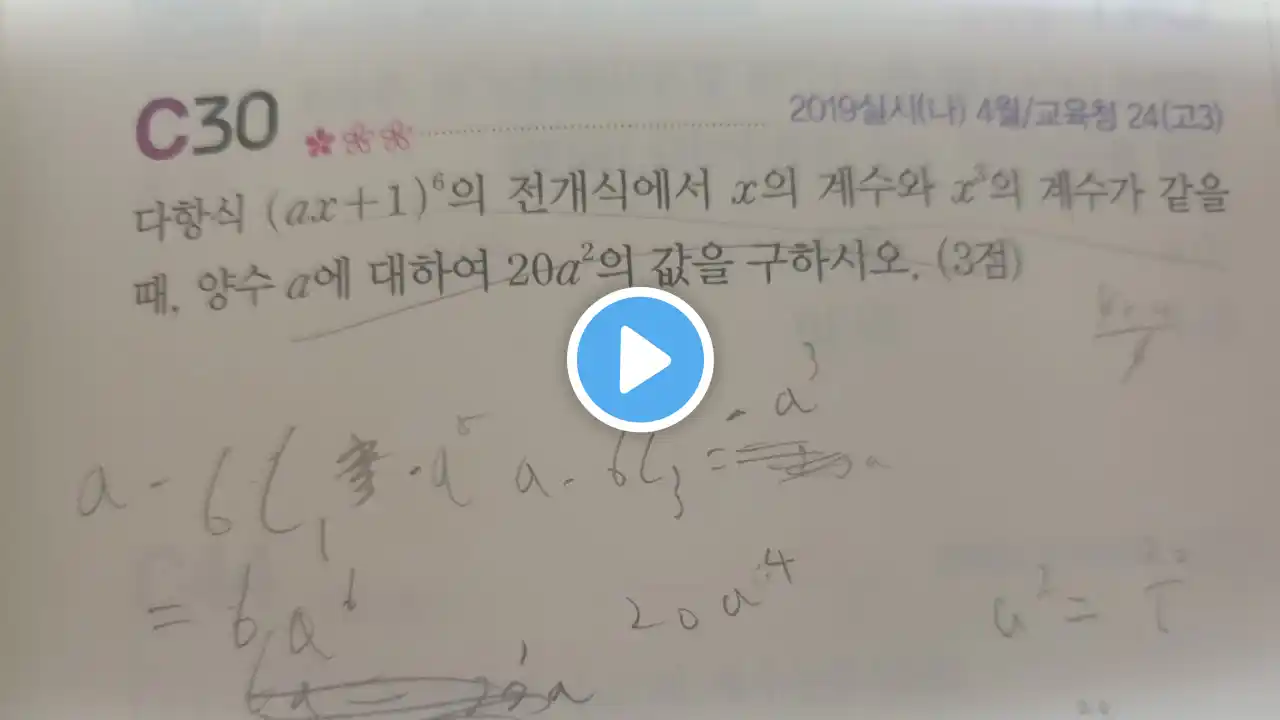 C30
2019실시(나) 4월/교육청 24(고3)
다항식 (ax+1)⁶의 전개식에서 x의 계수와 x³의 계수가 같을
때, 양수 a에 대하여 20a²의 값을 구하시오. (3점)
a · ₆C₁ · a⁵ a · ₆C₃ = · a³
= 6a⁶
20a⁴
a² =